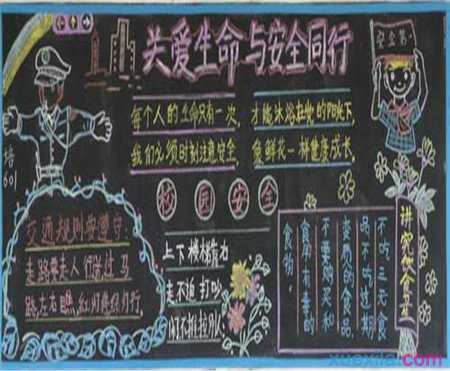 关爱生命与安全同行
安全第一
每个人的生命只有一次,
我们必须时刻注意安全
才能沐浴在
的阳光下,
象鲜花一样健康成长。
培
601
校园安全
交通规则要遵守
走路要走人行
马
路左右瞧
红灯
行。
上下楼梯靠右
走不追打
讲究饮食
不吃三无食
品不吃过期
变质的食品
不要购买和
食用有毒的
食物。
xuexila.com